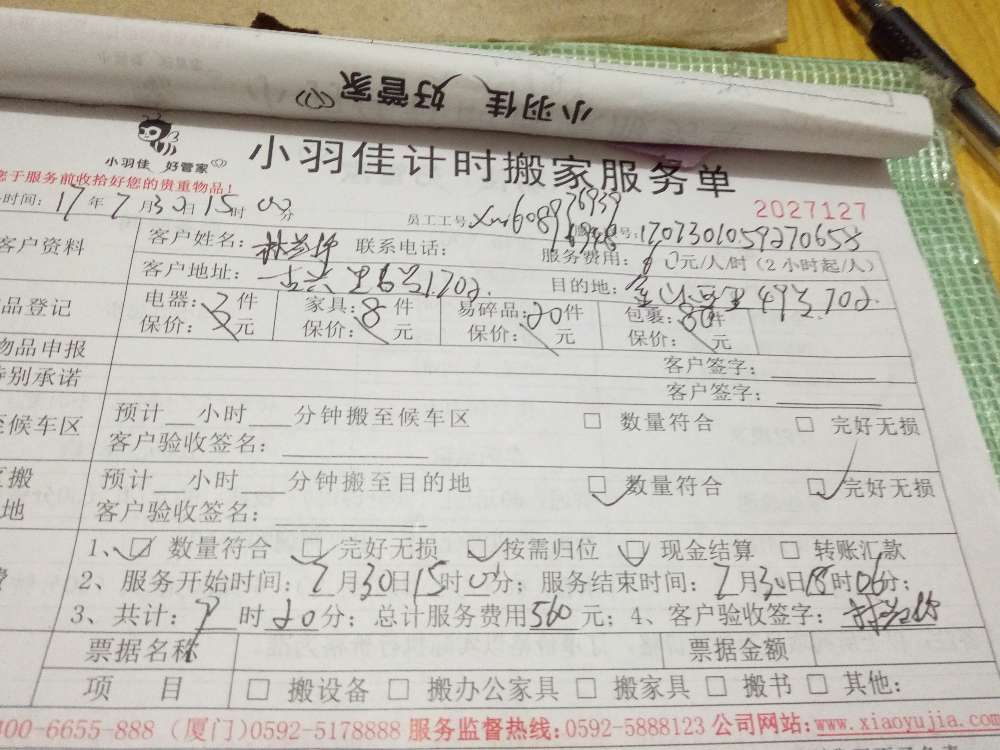 小羽佳 好管家
小羽佳 好管家
小羽佳计时搬家服务单
您于服务前收拾好您的贵重物品!
时间: 17年7月30日15时00分
员工工号
2027127
号: 1707301059270658
客户资料
客户姓名: 联系电话: 服务费用: 80元/人/时 (2小时起/人)
客户地址: 目的地:
品登记
电器: 3件 家具: 8件 易碎品: 20件 包裹: 80件
保价: 元 保价: 元 保价: 元 保价: 元
物品申报 客户签字:
特别承诺 客户签字:
至候车区
预计 小时 分钟搬至候车区 □ 数量符合 □ 完好无损
客户验收签名:
搬
地
预计 小时 分钟搬至目的地 ☑ 数量符合 ☑ 完好无损
客户验收签名:
1、☑ 数量符合 ☑ 完好无损 ☑ 按需归位 ☑ 现金结算 □ 转账汇款
2、服务开始时间: 7月30日15时00分; 服务结束时间: 7月30日18时06分;
3、共计: 时20分; 总计服务费用560元; 4、客户验收签字:
票据名称 票据金额
项 目 □ 搬设备 □ 搬办公家具 □ 搬家具 □ 搬书 □ 其他:
400-6655-888 (厦门)0592-5178888 服务监督热线:0592-5888123 公司网站:www.xiaoyujia.com